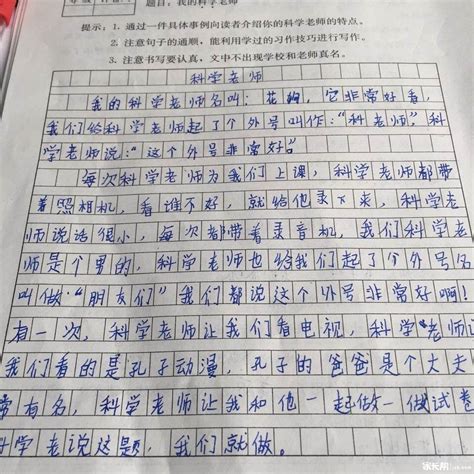 题目：我的科学老师
提示：1. 通过一件具体事例向读者介绍你的科学老师的特点。
2. 注意句子的通顺，能利用学过的习作技巧进行写作。
3. 注意书写要认真，文中不出现学校和老师真名。
科学老师
我的科学老师名叫：花 它非常好看，
我们给科学老师起了个外号叫作：“科老师”，科
学老师说：“这个外号非常好。”
每次科学老师为我们上课，科学老师都带
着照相机，看谁不好，就给他录下来，科学老
师说话很小，每次都带着录音机，我们科学老
师是个男的，科学老师也给我们起了个外号名
叫做“朋友们”我们都说这个外号非常好啊！
有一次，科学老师让我们看电视，科学老师让
我们看的是孔子动漫，孔子的爸爸是个大夫
常有名，科学老师让我和他一起做一做试卷
科学老说这题，我们就做。